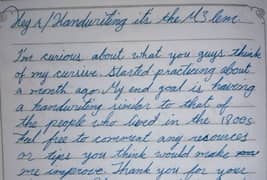 Hey r/Handwriting it's the M3 leme
I'm curious about what you guys think
of my cursive. Started practicing about
a month ago. My end goal is having
a handwriting similar to that of
the people who lived in the 1800s.
Feel free to comment any resources
or tips you think would make
me improve. Thank you for your